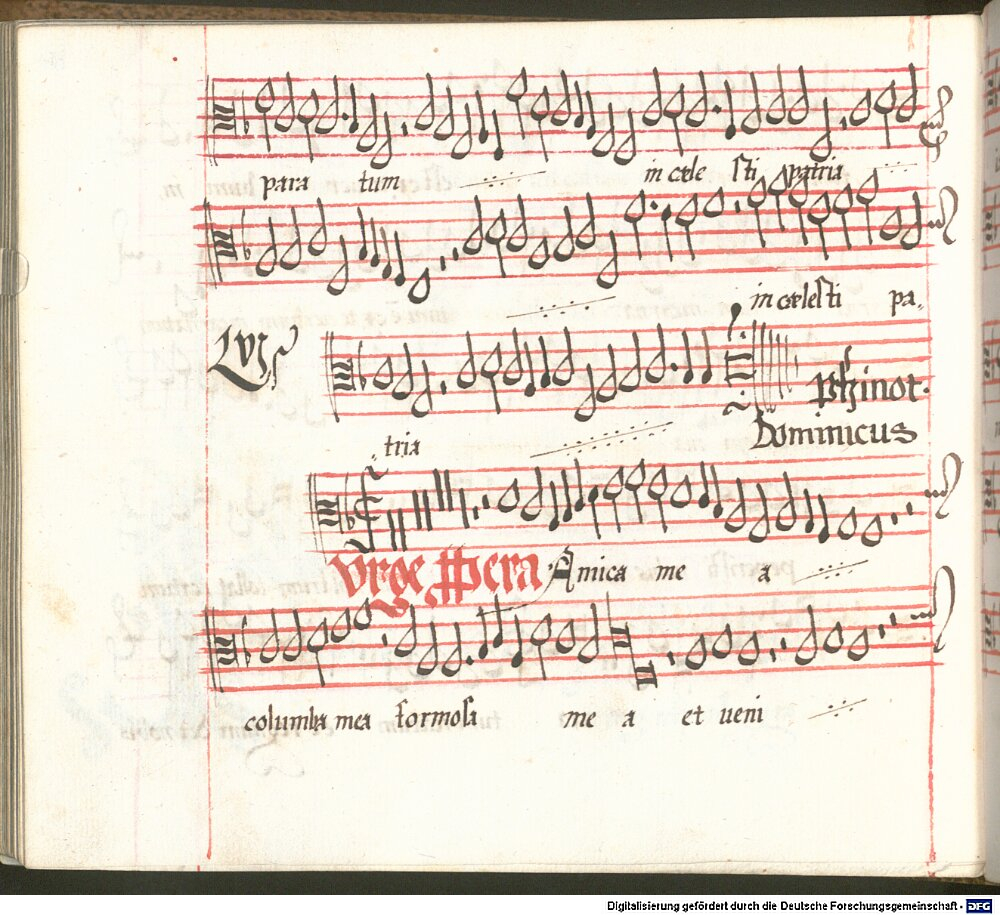 para tum in cœle sti patria
in cœlesti pa,
Lvs
Phinot.
tria
Dominicus
Amica me a
columba mea formosa me a et veni
Digitalisierung gefördert durch die Deutsche Forschungsgemeinschaft - DFG